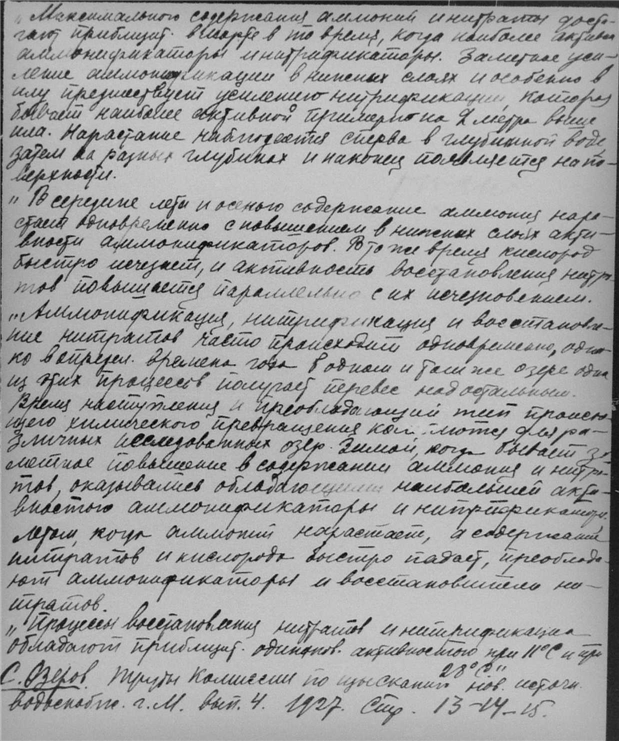 „Максимального содержания аммоний и нитраты дости-
гают приблизит. в марте в то время, когда наиболее активны
аммонификаторы и нитрификаторы. Заметное уси-
ление аммонификации в нижних слоях и особенно в
илу предшествует усилению нитрификации, которая
бывает наиболее активной примерно на 2 метра выше
ила. Нарастание наблюдается сперва в глубинной воде,
затем на разных глубинах и наконец появляется на по-
верхности.
„В середине лета и осенью содержание аммония нара-
стает одновременно с повышением в нижних слоях акти-
вности аммонификаторов. В то же время кислород
быстро исчезает, и активность восстановления нитра-
тов повышается параллельно с их исчезновением.
„Аммонификация, нитрификация и восстановле-
ние нитратов часто происходит одновременно, одна-
ко в определ. времена года в одном и том же озере один
из этих процессов получает перевес над остальными.
Время наступления и преобладающий тип происхо-
щего химического превращения для ра-
зличных исследованных озер. Зимой, когда бывает за-
метное повышение в содержании аммония и нитра-
тов, оказывались обладающими наибольшей акти-
вностью аммонификаторы и нитрификаторы
летом, когда аммоний нарастает, а содержание
нитратов и кислорода быстро падает, преоблада-
ют аммонификаторы и восстановители ни-
тратов.
„Процессы восстановления нитратов и нитрификации
обладают приблизит. одинаков. активностью при 11°С и при
28°С."
С. Озеров. Труды Комиссии по изысканию нов. источн.
водоснабж. г. М. вып. 4. 1927. Стр. 13-14-15.